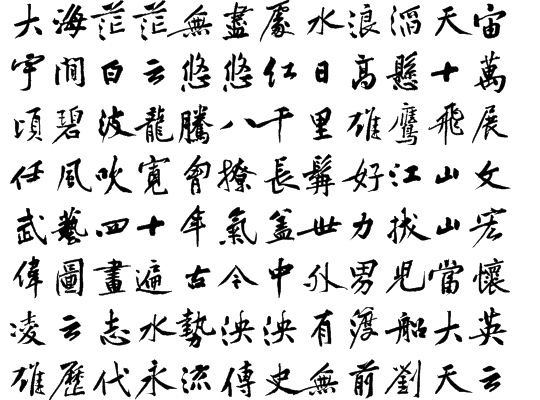 大海茫茫無盡處水浪滔天宙
宇間白云悠悠紅日高懸十萬
頃碧波龍騰八千里雄鷹飛展
任風吹寬會撩長髯好江山文
武藝四十年氣蓋世力拔山宏
偉圖畫遍古今中外男兒當懷
凌云志水勢泱泱有渡船大英
雄歷代永流傳史無前劉天云